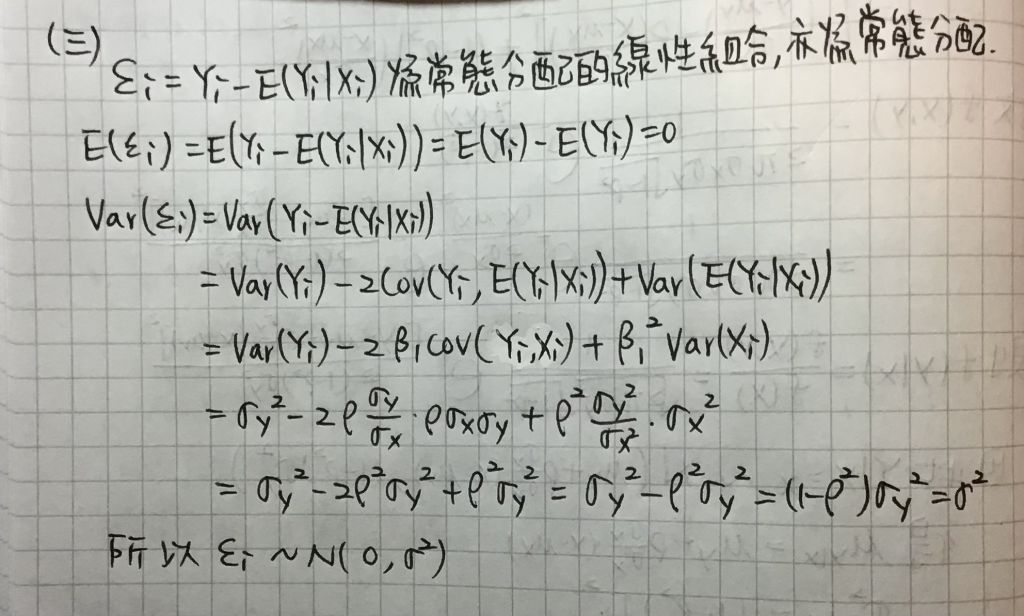 (三)
εi = Yi - E(Yi|Xi) 為常態分配的線性組合, 亦為常態分配.
E(εi) = E(Yi - E(Yi|Xi)) = E(Yi) - E(Yi) = 0
Var(εi) = Var(Yi - E(Yi|Xi))
= Var(Yi) - 2Cov(Yi, E(Yi|Xi)) + Var(E(Yi|Xi))
= Var(Yi) - 2β₁cov(Yi, Xi) + β₁² Var(Xi)
= σy² - 2ρ σy/σx · ρσxσy + ρ² σy²/σx² · σx²
= σy² - 2ρ²σy² + ρ²σy² = σy² - ρ²σy² = (1-ρ²)σy² = σ²
所以 εi ~ N(0, σ²)